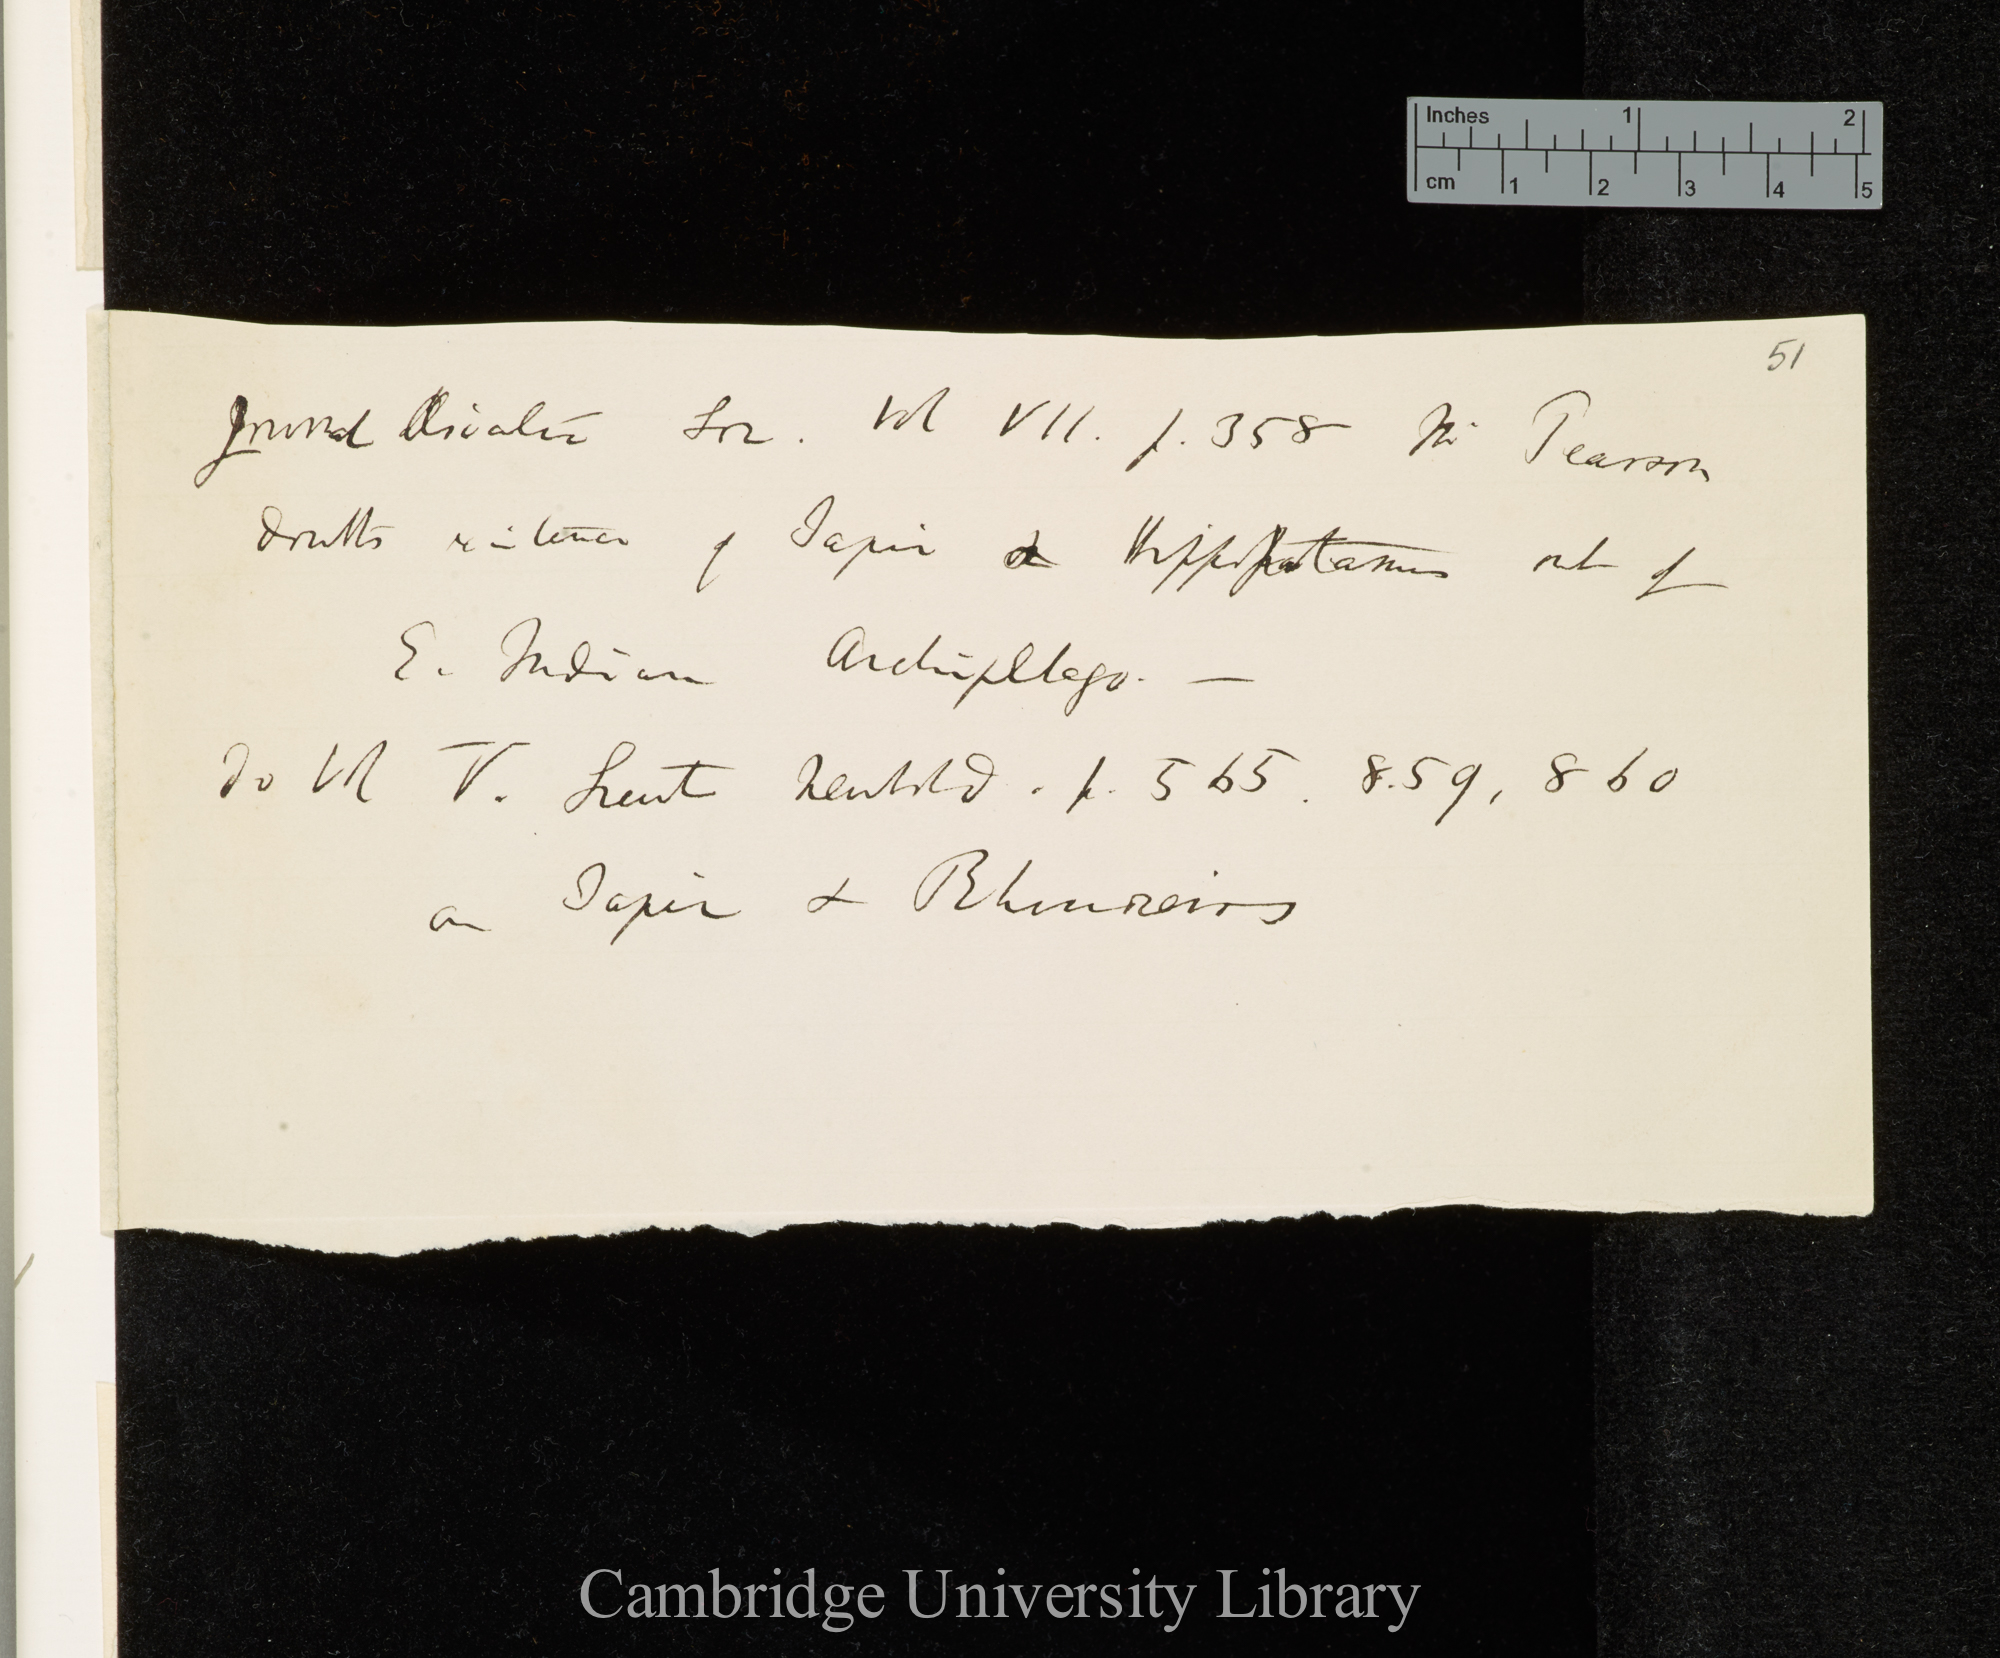 51
Journal Asiatic Soc. Vol VII. p. 358 Mr Pearson
doubts existence of Tapir & Hippopotamus out of
E. Indian Archipelago. —
Do Vol V. Lieut Newbold. p. 565. 859, 860
on Tapir & Rhinoceros
Inches 1 2
cm 1 2 3 4 5
Cambridge University Library